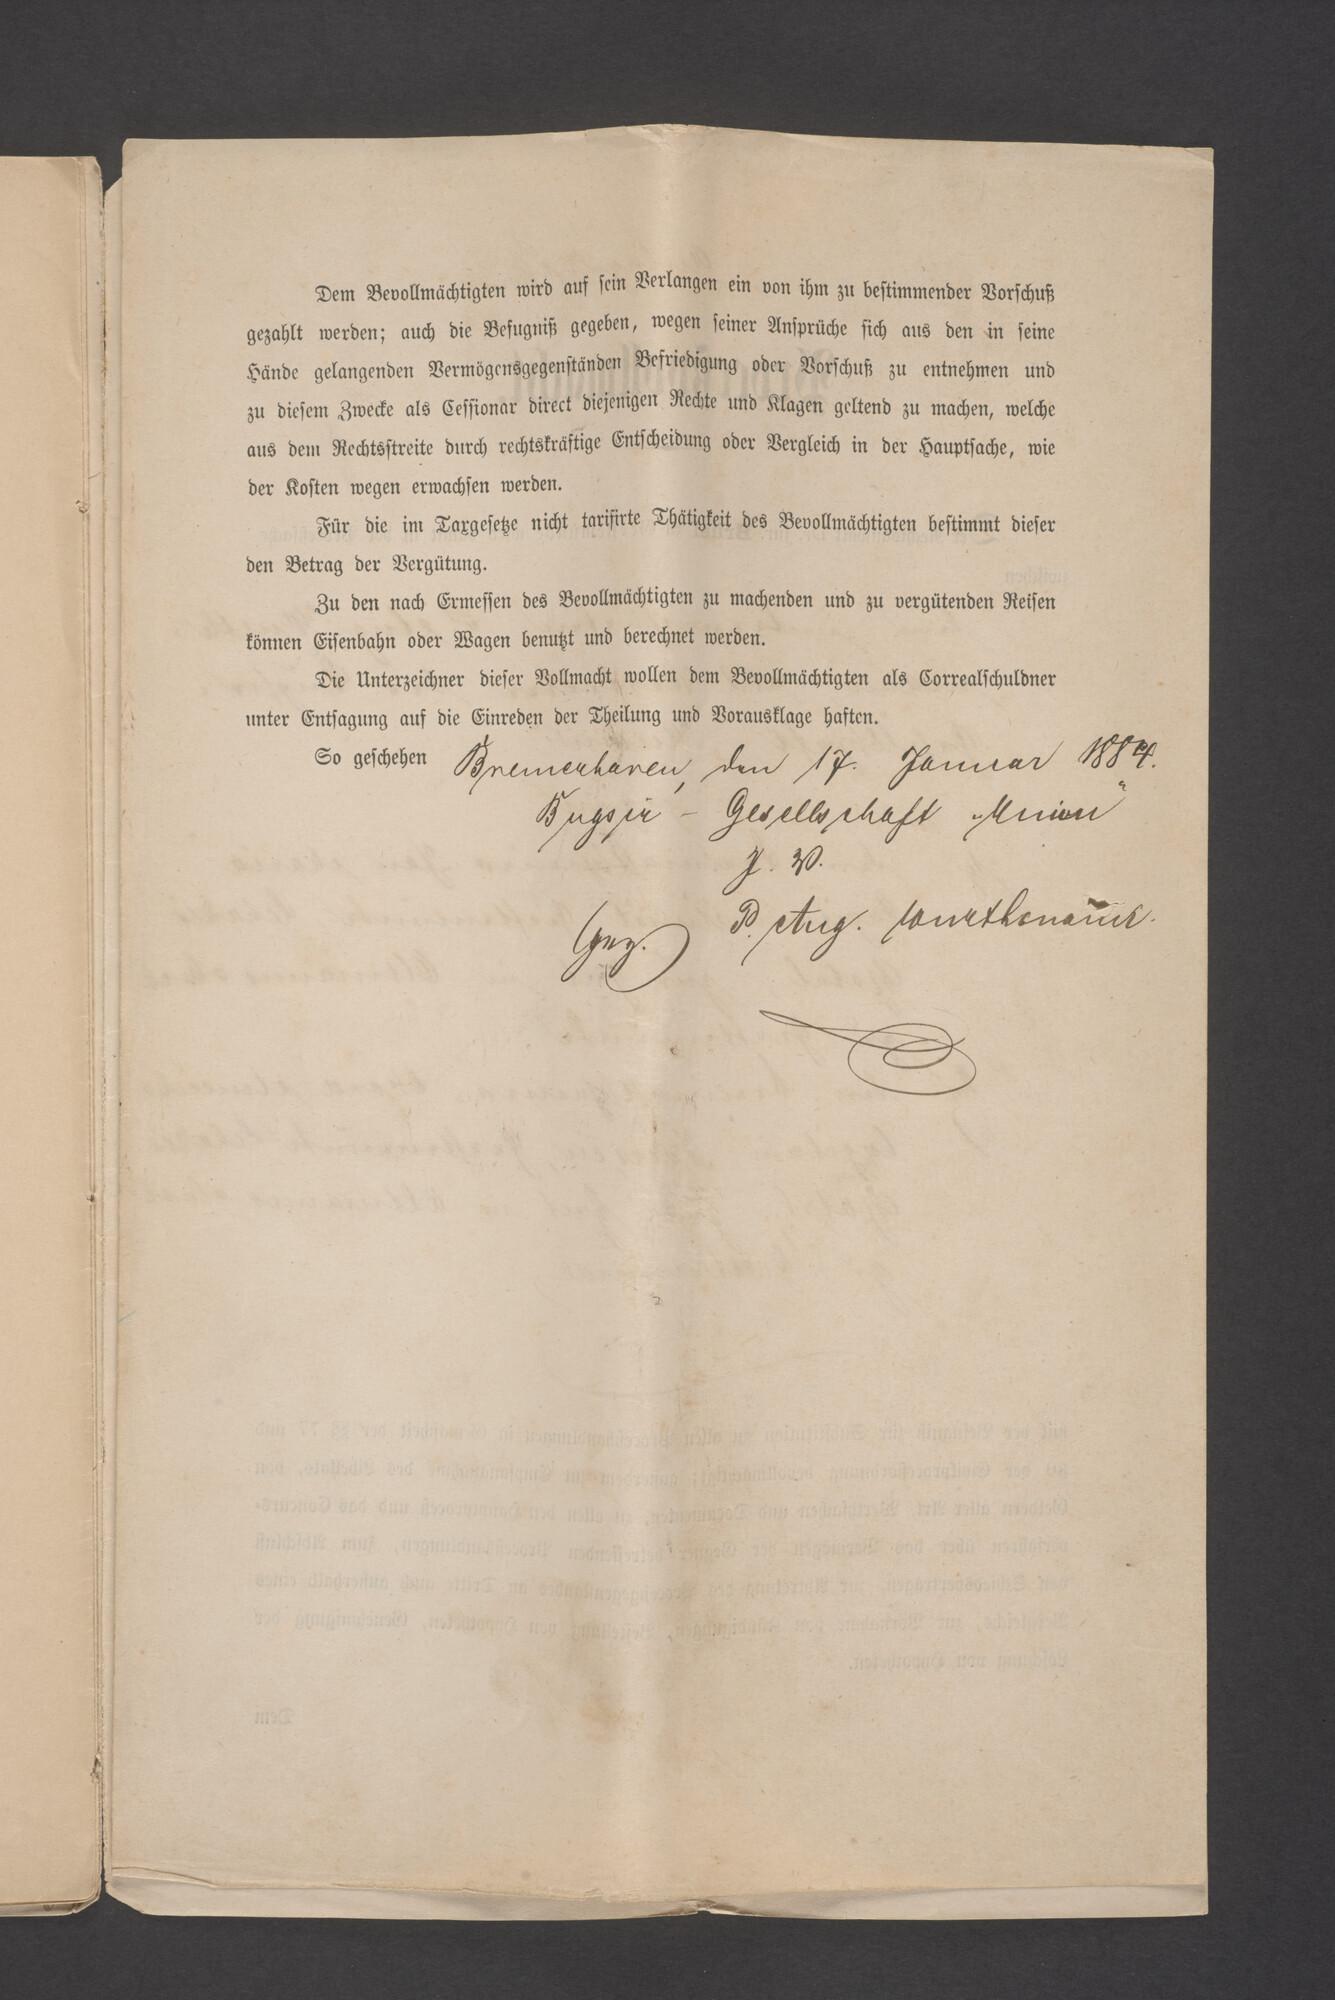 Dem Bevollmächtigten wird auf sein Verlangen ein von ihm zu bestimmender Vorschuß
gezahlt werden; auch die Befugniß gegeben, wegen seiner Ansprüche sich aus den in seine
Hände gelangenden Vermögensgegenständen Befriedigung oder Vorschuß zu entnehmen und
zu diesem Zwecke als Cessionar direct diejenigen Rechte und Klagen geltend zu machen, welche
aus dem Rechtsstreite durch rechtskräftige Entscheidung oder Vergleich in der Hauptsache, wie
der Kosten wegen erwachsen werden.
Für die im Taxgesetze nicht tarifirte Thätigkeit des Bevollmächtigten bestimmt dieser
den Betrag der Vergütung.
Zu den nach Ermessen des Bevollmächtigten zu machenden und zu vergütenden Reisen
können Eisenbahn oder Wagen benutzt und berechnet werden.
Die Unterzeichner dieser Vollmacht wollen dem Bevollmächtigten als Correalschuldner
unter Entsagung auf die Einreden der Theilung und Vorausklage haften.
So geschehen Bremerhaven, den 17. Januar 1884.
Bugsir - Gesellschaft „Union"
J. V.
(gez.) P. Aug.